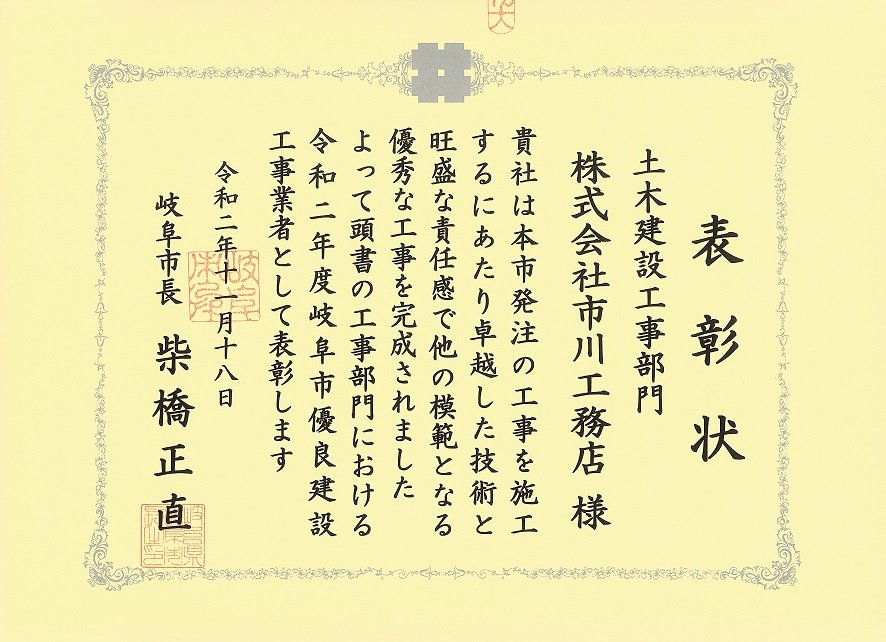 表彰状
土木建設工事部門
株式会社市川工務店 様
貴社は本市発注の工事を施工
するにあたり卓越した技術と
旺盛な責任感で他の模範となる
優秀な工事を完成されました
よって頭書の工事部門における
令和二年度岐阜市優良建設
工事業者として表彰します
令和二年十一月十八日
岐阜市長 柴橋正直